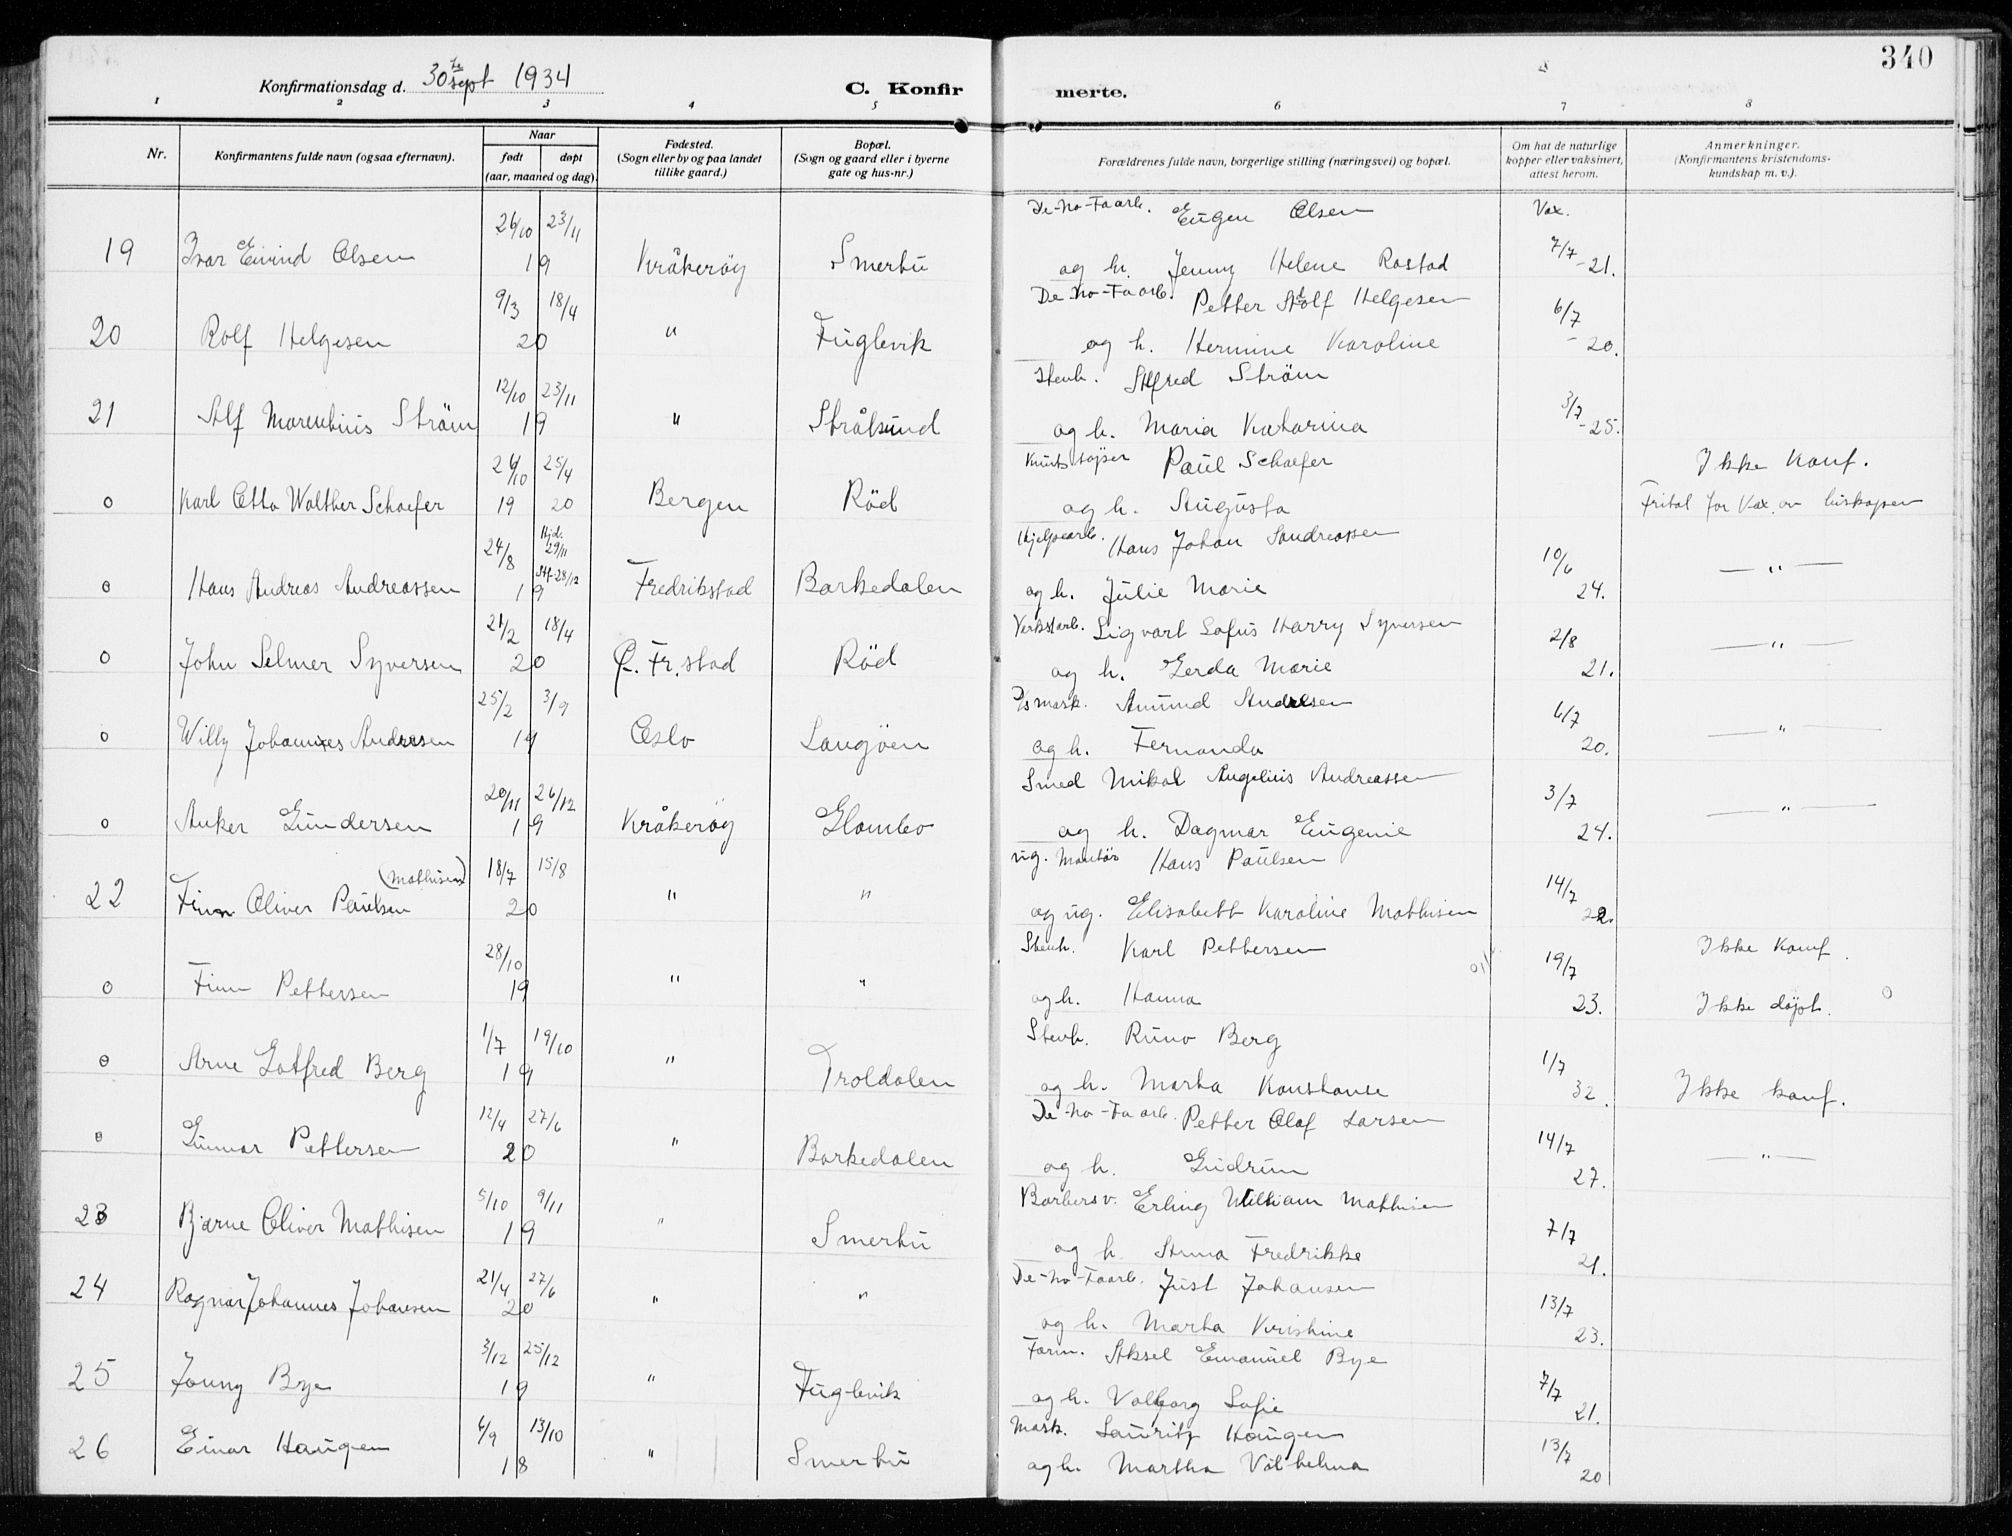 340
Konfirmationsdag d. 30te sept 1934
C. Konfirmerte.
1 2 3 4 5 6 7 8
Nr.
Konfirmantens fulde navn (ogsaa efternavn).
Naar
født døpt
(aar, maaned og dag).
Fødested.
(Sogn eller by og paa landet
tillike gaard.)
Bopæl.
(Sogn og gaard eller i byerne
gate og hus-nr.)
Forældrenes fulde navn, borgerlige stilling (næringsvei) og bopæl.
Om hat de naturlige
kopper eller vaksinert,
attest herom.
Anmerkninger.
(Konfirmantens kristendoms-
kundskap m. v.).
26/10 23/11 De-No-Fa arb. Eugen Olsen Vax.
19 Ivar Eivind Olsen 19 Kråkerøy Smertu og h. Jenny Helene Rostad 7/7-21.
9/3 18/4 De-No-Fa arb. Petter Adolf Helgesen
20 Rolf Helgesen 20 " Fuglevik og h. Hermine Karoline 6/7-20.
12/10 23/11 Stenh. Alfred Strøm
21 Alf Marentius Strøm 19 " Stråksund og h. Maria Katarina 3/7-25.
26/10 25/4 Paul Schaefer Ikke Konf.
o Karl Otto Walther Schaefer 19 20 Bergen Rød og h. Augusta Frital for Vax. av biskopen
24/8 Hjd. 29/11 Hjelpearb. Hans Johan Andreassen
o Hans Andreas Andreassen 19 Stf. 28/12 Fredrikstad Barkedalen og h. Julie Marie 10/6 24. — " —
21/2 18/4 Verkstarb. Sigvart Sofus Harry Syversen
o John Selmer Syversen 20 Ø. Fr.stad Rød og h. Gerda Marie 2/8 21. — " —
25/2 3/9 Amund Andresen
o Willy Johannes Andresen 19 Oslo Langøen og h. Fernanda 6/7 20. — " —
20/11 26/12 Smed Mikal Angelius Andreassen
o Anker Gundersen 19 Kråkerøy Glombo og h. Dagmar Eugenie 3/7 24. — " —
(Mathisen) 18/7 15/8 ug. Montør Hans Paulsen
22 Finn Oliver Paulsen 20 " " og ug. Elisabett Karoline Mathisen 14/7 22.
28/10 Stenh. Karl Pettersen Ikke Konf.
o Finn Pettersen 19 " " og h. Hanna 19/7 23. Ikke døpt. o
1/7 19/10 Stenh. Runo Berg
o Arne Gotfred Berg 19 " Troldalen og h. Marta Konstanse 1/7 32. Ikke konf.
12/4 27/6 De-No-Fa arb. Petter Olaf Larsen
o Gunnar Pettersen 20 " Barkedalen og h. Gudrun 14/7 27. — " —
5/10 9/11 Barbersv. Erling William Mathisen
23 Bjarne Oliver Mathisen 19 " Smertu og h. Anna Fredrikke 7/7 21.
21/4 27/6 De-No-Fa arb. Just Johansen
24 Ragnar Johannes Johansen 20 " " og h. Marta Kristine 13/7 23.
3/12 25/12 Form. Aksel Emanuel Bye
25 Jonny Bye 19 " Fuglevik og h. Valborg Sofie 7/7 21.
6/9 13/10 Mask. Lauritz Haugen
26 Einar Haugen 18 " Smertu og h. Martha Vilhelma 13/7 20